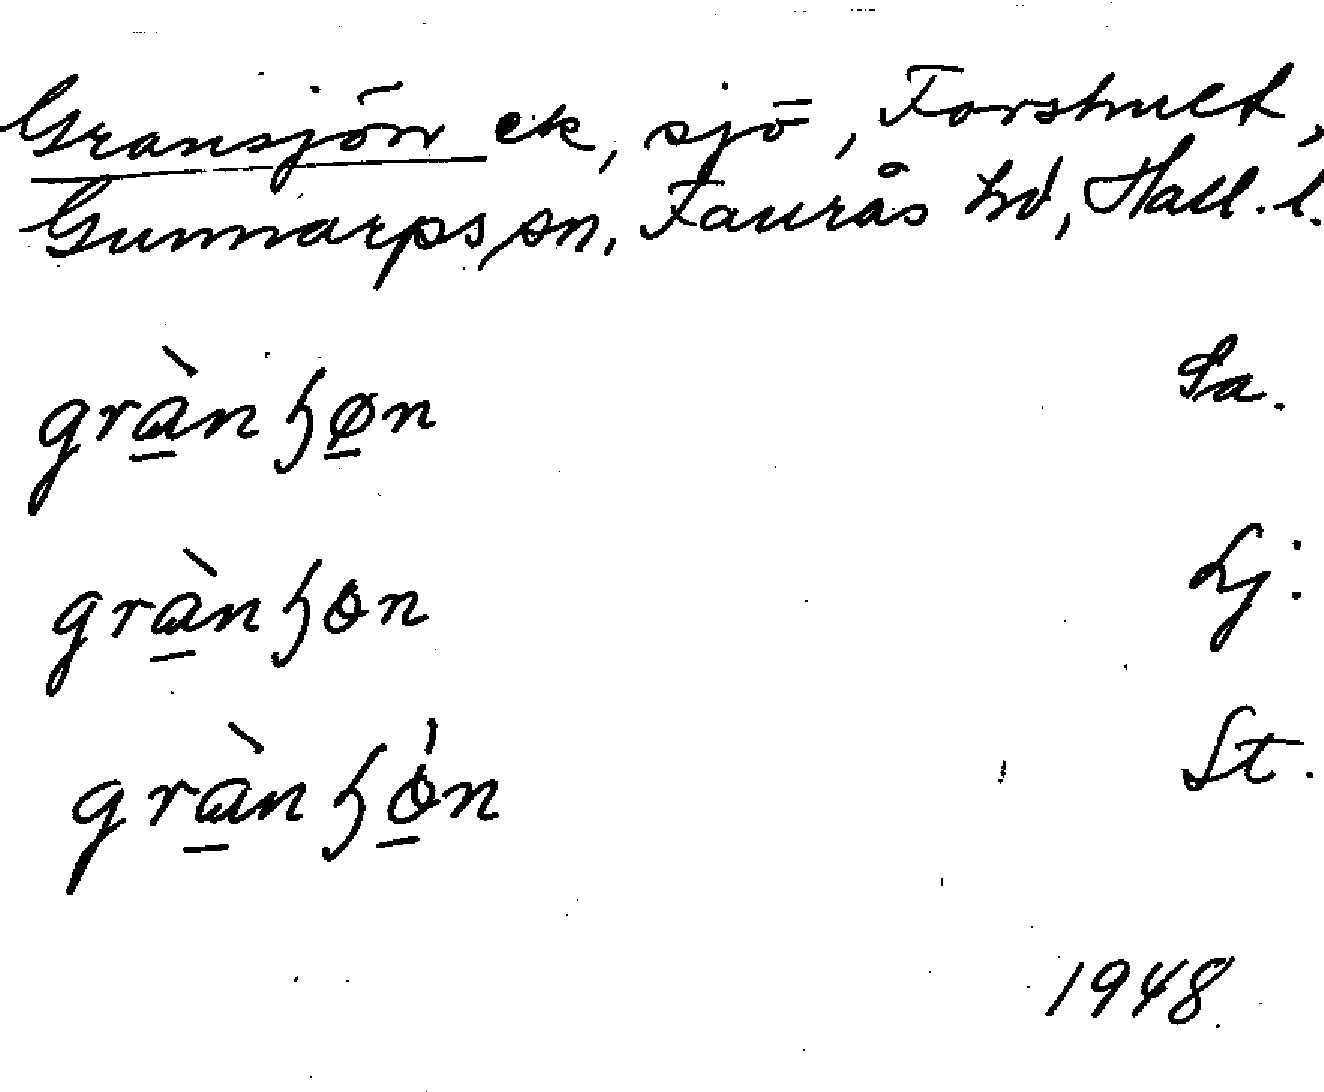 Gransjön ek, sjö, Forshult,
Gunnarps sn, Faurås hd, Hall. l.
grànɧøn Sa.
grànɧɵn Lj.
grànɧɵ́n St.
1948